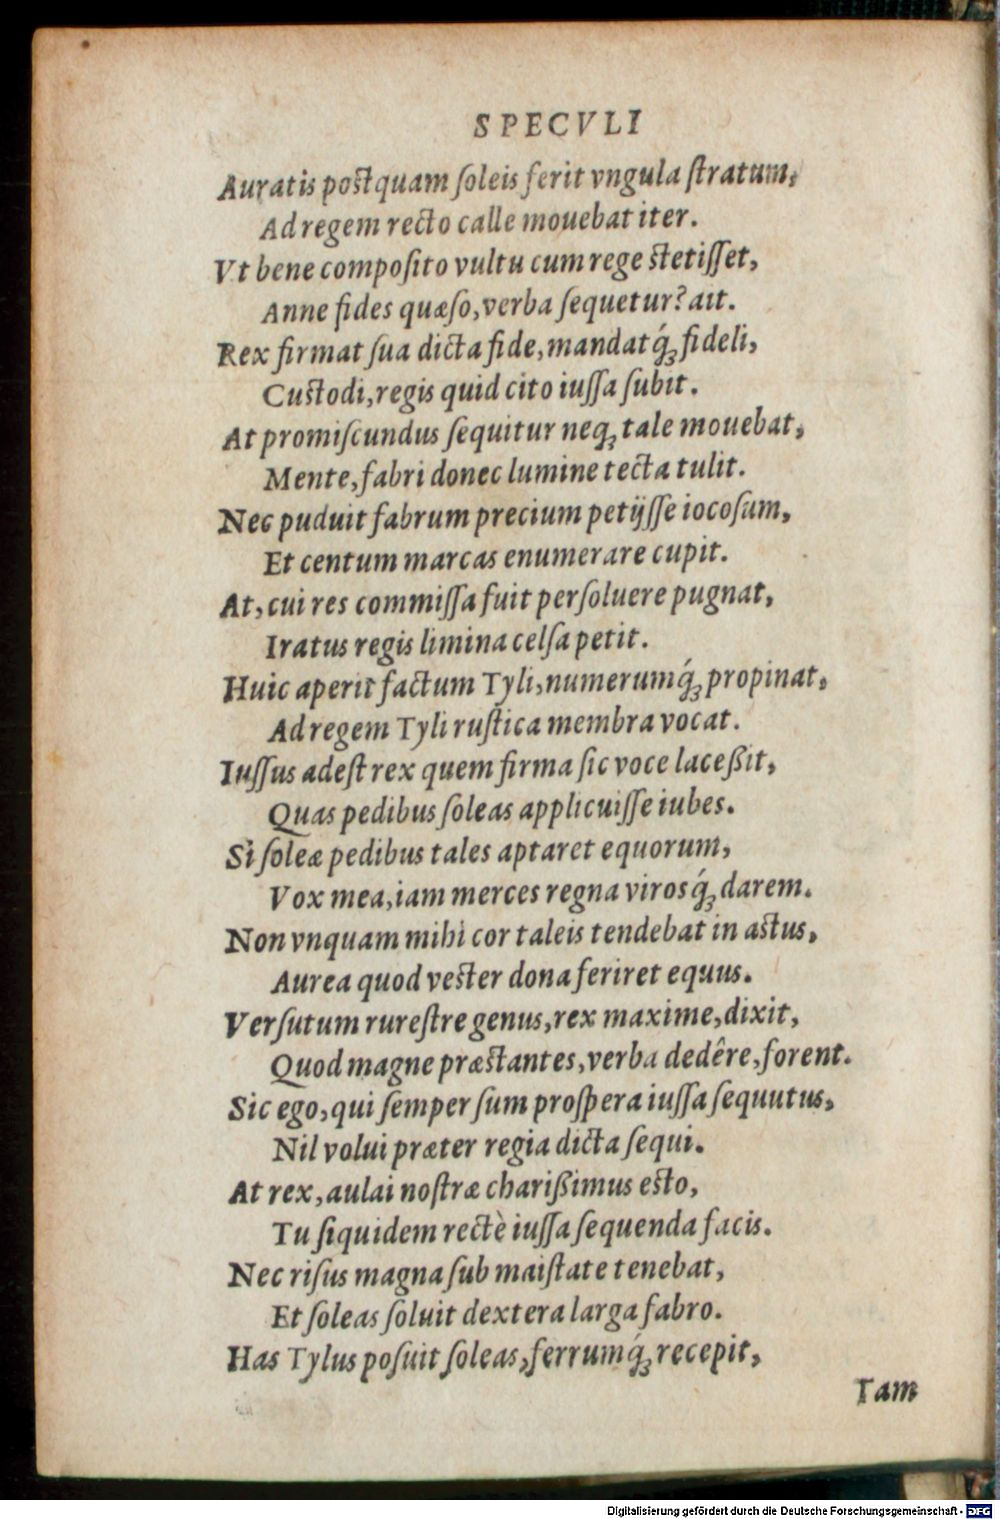 SPECVLI
Auratis postquam ſoleis ferit vngula ſtratum,
Ad regem recto calle mouebat iter.
Vt bene compoſito vultu cum rege stetiſſet,
Anne fides quæſo, verba ſequetur? ait.
Rex firmat ſua dicta fide, mandatq́ꝫ fideli,
Custodi, regis quid cito iuſſa ſubit.
At promiſcundus ſequitur neqꝫ tale mouebat,
Mente, fabri donec lumine tecta tulit.
Nec puduit fabrum precium petijſſe iocoſum,
Et centum marcas enumerare cupit.
At, cui res commiſſa fuit perſoluere pugnat,
Iratus regis limina celſa petit.
Huic aperit factum Tyli, numerumq́ꝫ propinat,
Ad regem Tyli ruſtica membra vocat.
Iuſſus adeſt rex quem firma ſic voce laceßit,
Quas pedibus ſoleas applicuiſſe iubes.
Si ſoleæ pedibus tales aptaret equorum,
Vox mea, iam merces regna virosq́ꝫ darem.
Non vnquam mihi cor taleis tendebat in astus,
Aurea quod vester dona feriret equus.
Verſutum rureſtre genus, rex maxime, dixit,
Quod magne præstantes, verba dedêre, forent.
Sic ego, qui ſemper ſum proſpera iuſſa ſequutus,
Nil volui præter regia dicta ſequi.
At rex, aulai noſtræ charißimus esto,
Tu ſiquidem rectè iuſſa ſequenda facis.
Nec riſus magna ſub maiſtate tenebat,
Et ſoleas ſoluit dextera larga fabro.
Has Tylus poſuit ſoleas, ferrumq́ꝫ recepit,
Tam
Digitalisierung gefördert durch die Deutsche Forschungsgemeinschaft - DFG